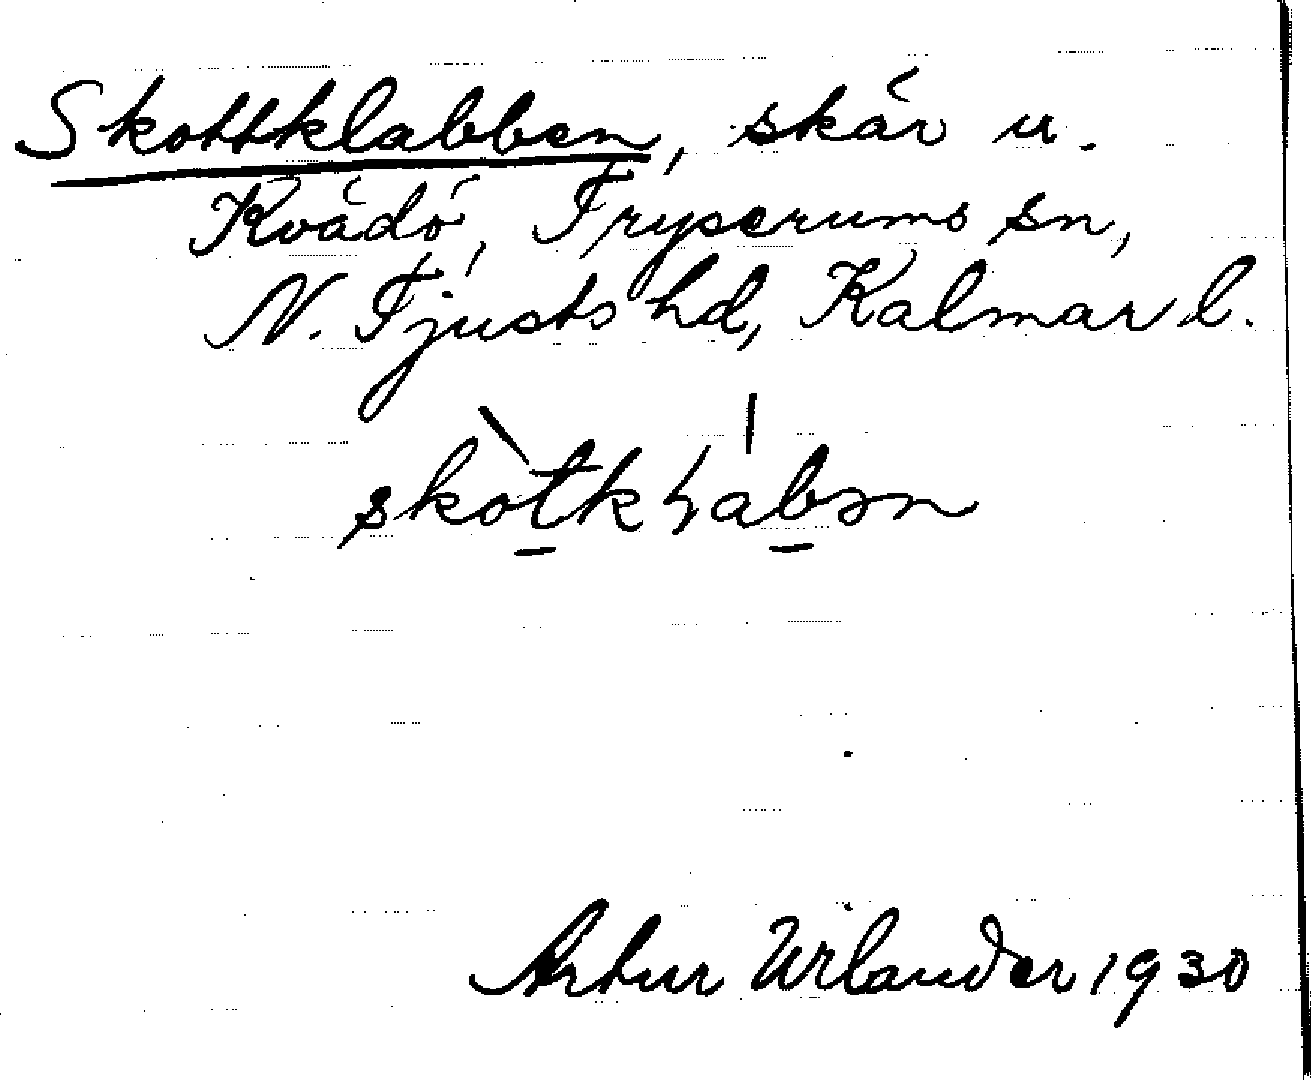 Skottklabben, skär u.
Kvädö, Tryserums sn,
N. Tjusts hd, Kalmar l.
Artur Wilander 1930